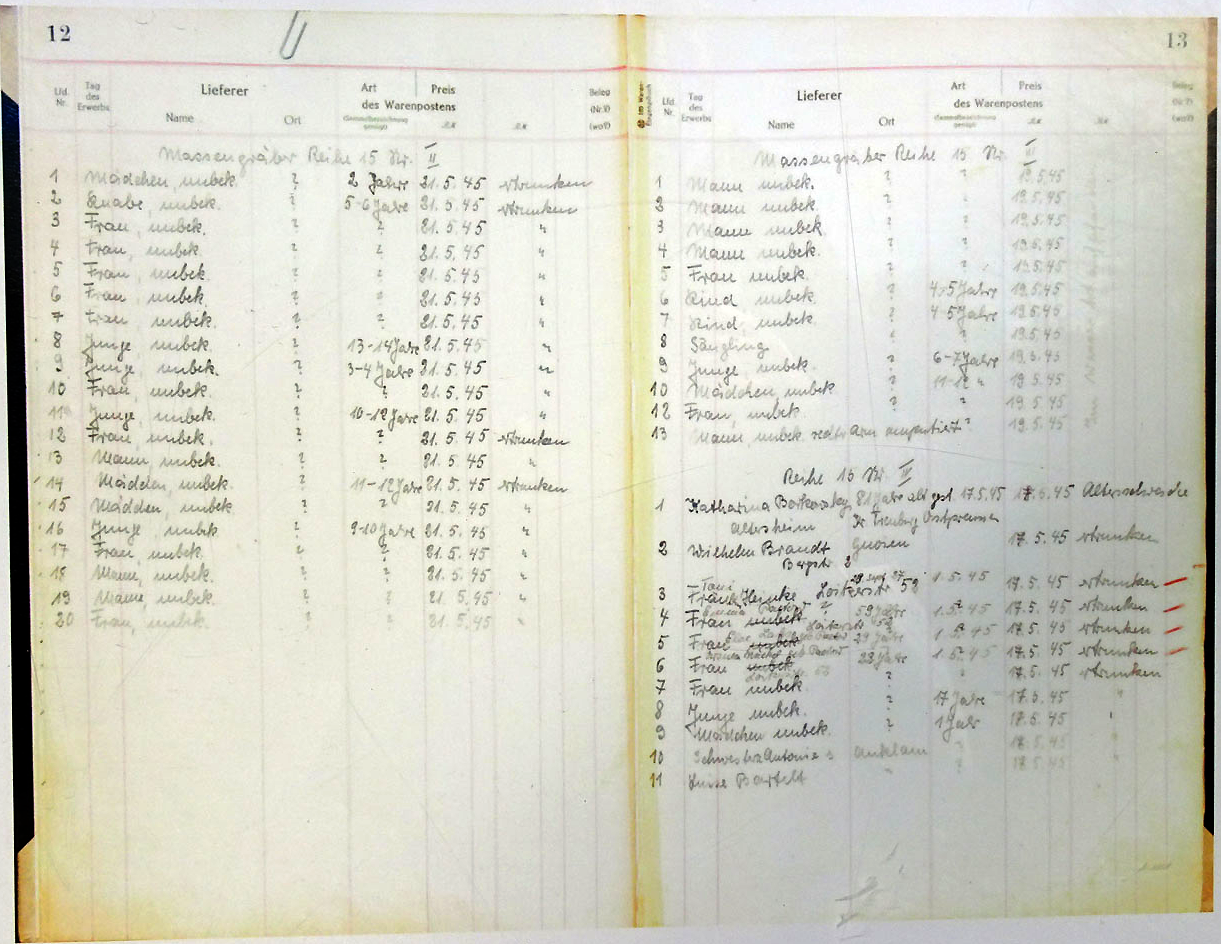 12
Lfd. Nr. Tag des Erwerbs Lieferer Name Ort Art des Warenpostens Preis Beleg (Nr.?) (wo?)
Massengräber Reihe 15 Nr. II
1 Mädchen, unbek. ? 2 Jahre 21.5.45 ertrunken
2 Knabe, unbek. ? 5-6 Jahre 21.5.45 ertrunken
3 Frau, unbek. ? ? 21.5.45 "
4 Frau, unbek. ? ? 21.5.45 "
5 Frau, unbek. ? ? 21.5.45 "
6 Frau, unbek. ? ? 21.5.45 "
7 Frau, unbek. ? ? 21.5.45 "
8 Junge, unbek. ? 13-14 Jahre 21.5.45 "
9 Junge, unbek. ? 3-4 Jahre 21.5.45 "
10 Frau, unbek. ? ? 21.5.45 "
11 Junge, unbek. ? 10-12 Jahre 21.5.45 "
12 Frau, unbek. ? ? 21.5.45 ertrunken
13 Mann, unbek. ? ? 21.5.45 "
14 Mädchen, unbek. ? 11-12 Jahre 21.5.45 ertrunken
15 Mädchen, unbek. ? 21.5.45 "
16 Junge, unbek. ? 9-10 Jahre 21.5.45 "
17 Frau, unbek. ? ? 21.5.45 "
18 Mann, unbek. ? ? 21.5.45 "
19 Mann, unbek. ? ? 21.5.45 "
20 Frau, unbek. ? ? 21.5.45 "
13
Lfd. Nr. Tag des Erwerbs Lieferer Name Ort Art des Warenpostens Preis Beleg (Nr.?) (wo?)
Massengräber Reihe 15 Nr. III
1 Mann unbek. ? ? 19.5.45
2 Mann unbek. ? ? 19.5.45
3 Mann unbek. ? ? 19.5.45
4 Mann unbek. ? ? 19.5.45
5 Frau unbek. ? ? 19.5.45
6 Kind unbek. ? 4-5 Jahre 19.5.45
7 Kind, unbek. ? 4-5 Jahre 19.5.45
8 Säugling ? ? 19.5.45
9 Junge, unbek. ? 6-7 Jahre 19.5.45
10 Mädchen, unbek ? 11-12 " 19.5.45
12 Frau, unbek. ? ? 19.5.45
13 Mann, unbek. rechter Arm amputiert ? 19.5.45
Reihe 15 Nr. IV
1 Katharina Borkowsky, 81 Jahre alt gest. 17.5.45 17.5.45 Altersschwäche
Altersheim Kr. Treuburg Ostpreussen
2 Wilhelm Brandt Gnoien 17.5.45 ertrunken
Bergstr. 2
3 Frau Heinke Loitzerstr 53 1.5.45 17.5.45 ertrunken
4 Frau unbek. 59 Jahre 1.5.45 17.5.45 ertrunken
5 Frau unbek. 29 Jahre 1.5.45 17.5.45 ertrunken
6 Frau unbek. 28 Jahre 1.5.45 17.5.45 ertrunken
7 Frau unbek. ? ? 17.5.45 ertrunken
8 Junge unbek. ? 17 Jahre 17.5.45 "
9 Mädchen unbek. ? 1 Jahr 17.5.45 "
10 Schwester Antonie Anklam ? 17.5.45 "
11 Luise Bartelt ? 17.5.45 "